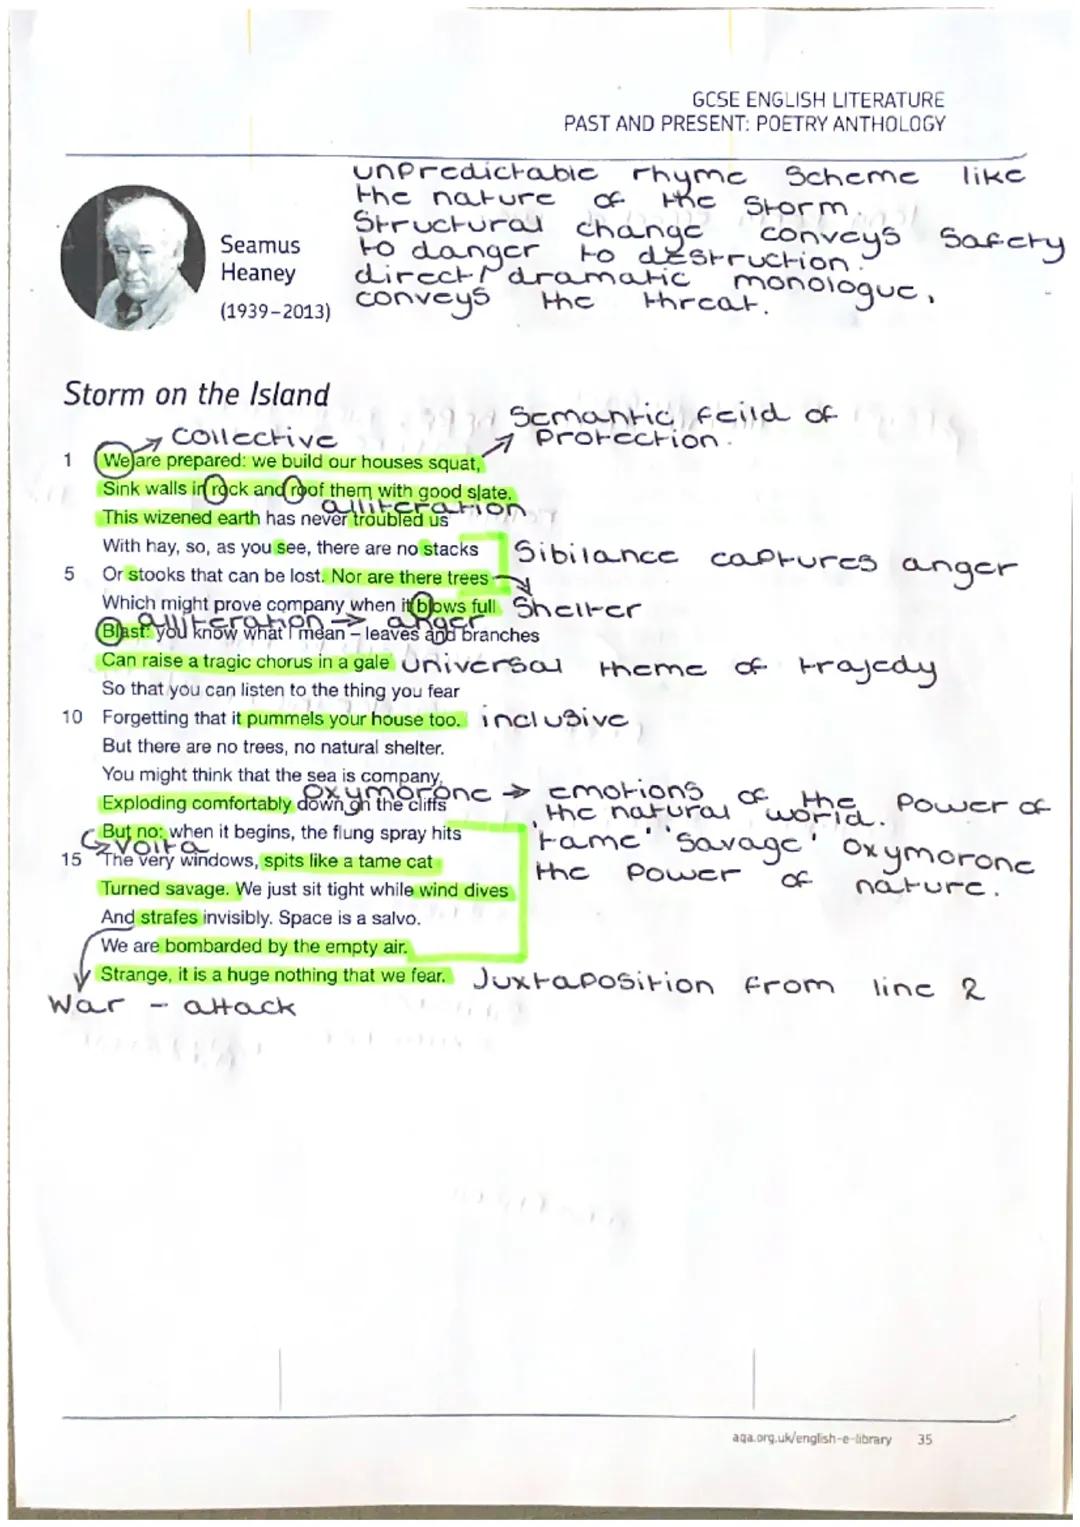 GCSE ENGLISH LITERATURE
PAST AND PRESENT: POETRY ANTHOLOGY
unpredictable rhyme scheme like
the nature of the storm
Structural change conveys safety
to danger to destruction.
direct / dramatic monologue,
conveys the threat.
Seamus
Heaney
(1939–2013)
Storm on the Island
Semantic feild of
Protection.
Collective
1 We are prepared: we build our houses squat,
Sink walls in rock and roof them with good slate.
alliteration
This wizened earth has never troubled us
With hay, so, as you see, there are no stacks
Sibilance captures anger
5 Or stooks that can be lost. Nor are there trees
Which might prove company when it blows full
Shelter
alliteration → anger
Blast: you know what I mean – leaves and branches
Can raise a tragic chorus in a gale
universal theme of trajedy
So that you can listen to the thing you fear
10 Forgetting that it pummels your house too.
inclusive
But there are no trees, no natural shelter.
You might think that the sea is company,
oxymorone → emotions of the power of
the natural world.
Exploding comfortably down on the cliffs
But no: when it begins, the flung spray hits
'tame' 'savage' oxymorone
the power of nature.
volta
15 The very windows, spits like a tame cat
Turned savage. We just sit tight while wind dives
And strafes invisibly. Space is a salvo.
We are bombarded by the empty air.
Strange, it is a huge nothing that we fear.
Juxtaposition from line 2
War – attack
aqa.org.uk/english-e-library 35